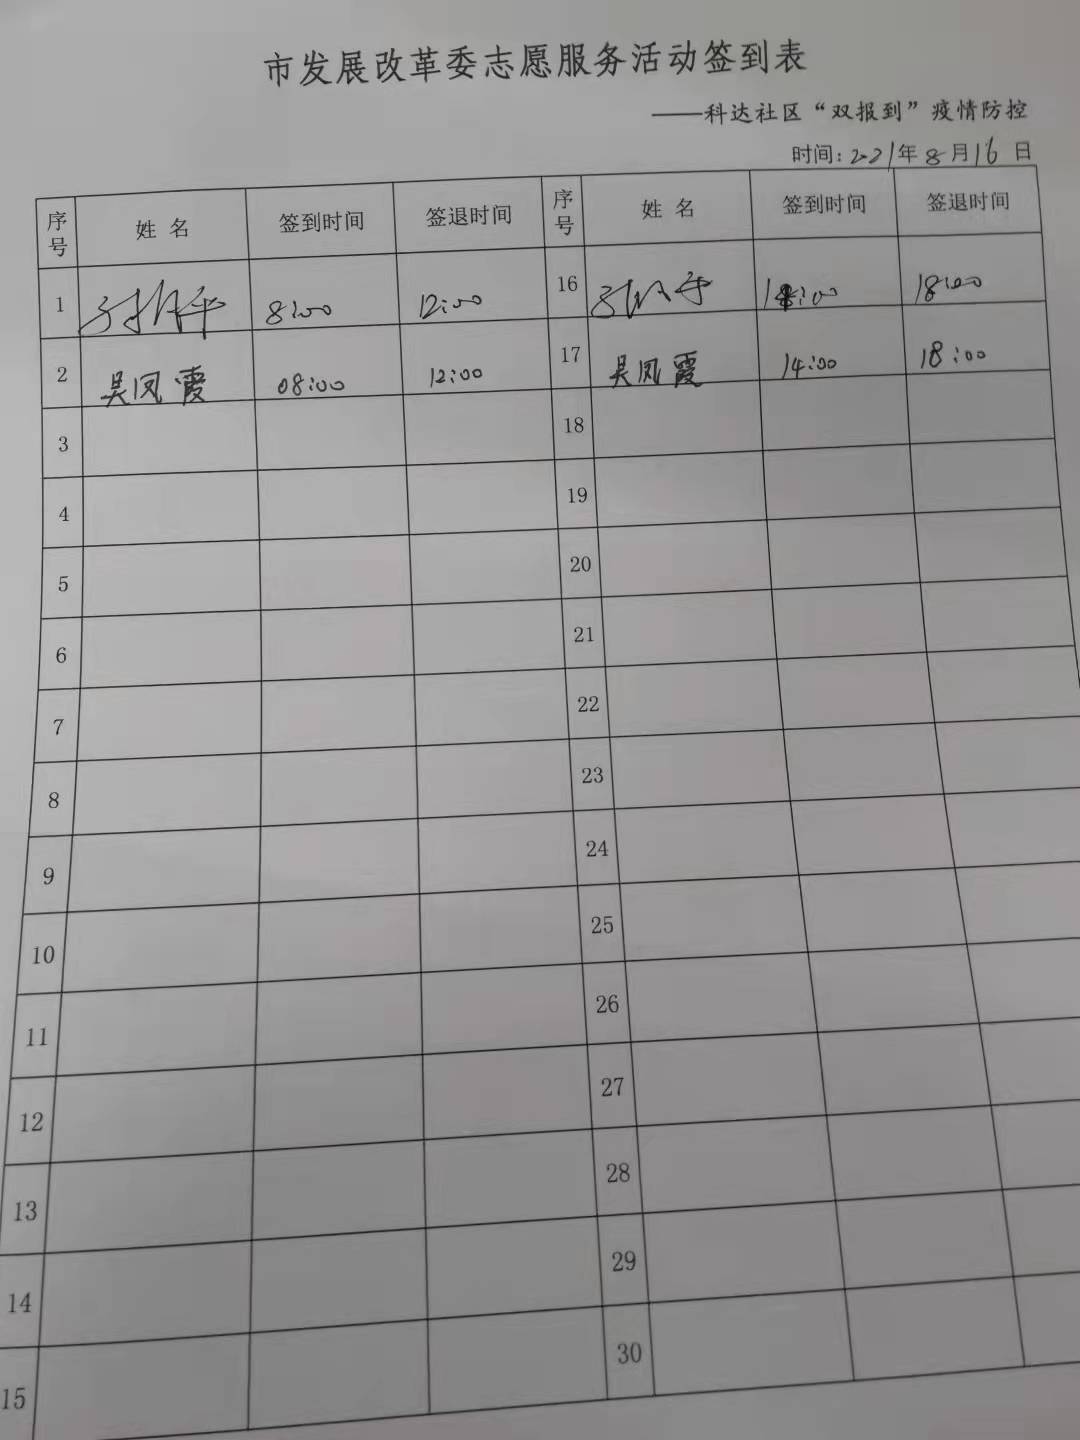 市发展改革委志愿服务活动签到表
——科达社区“双报到”疫情防控
时间:2021年8月16日
序号 姓 名 签到时间 签退时间 序号 姓 名 签到时间 签退时间
1 8:00 12:00 16 18:00
2 吴凤霞 08:00 12:00 17 吴凤霞 14:00 18:00
3 18
4 19
5 20
6 21
7 22
8 23
9 24
10 25
11 26
12 27
13 28
14 29
15 30